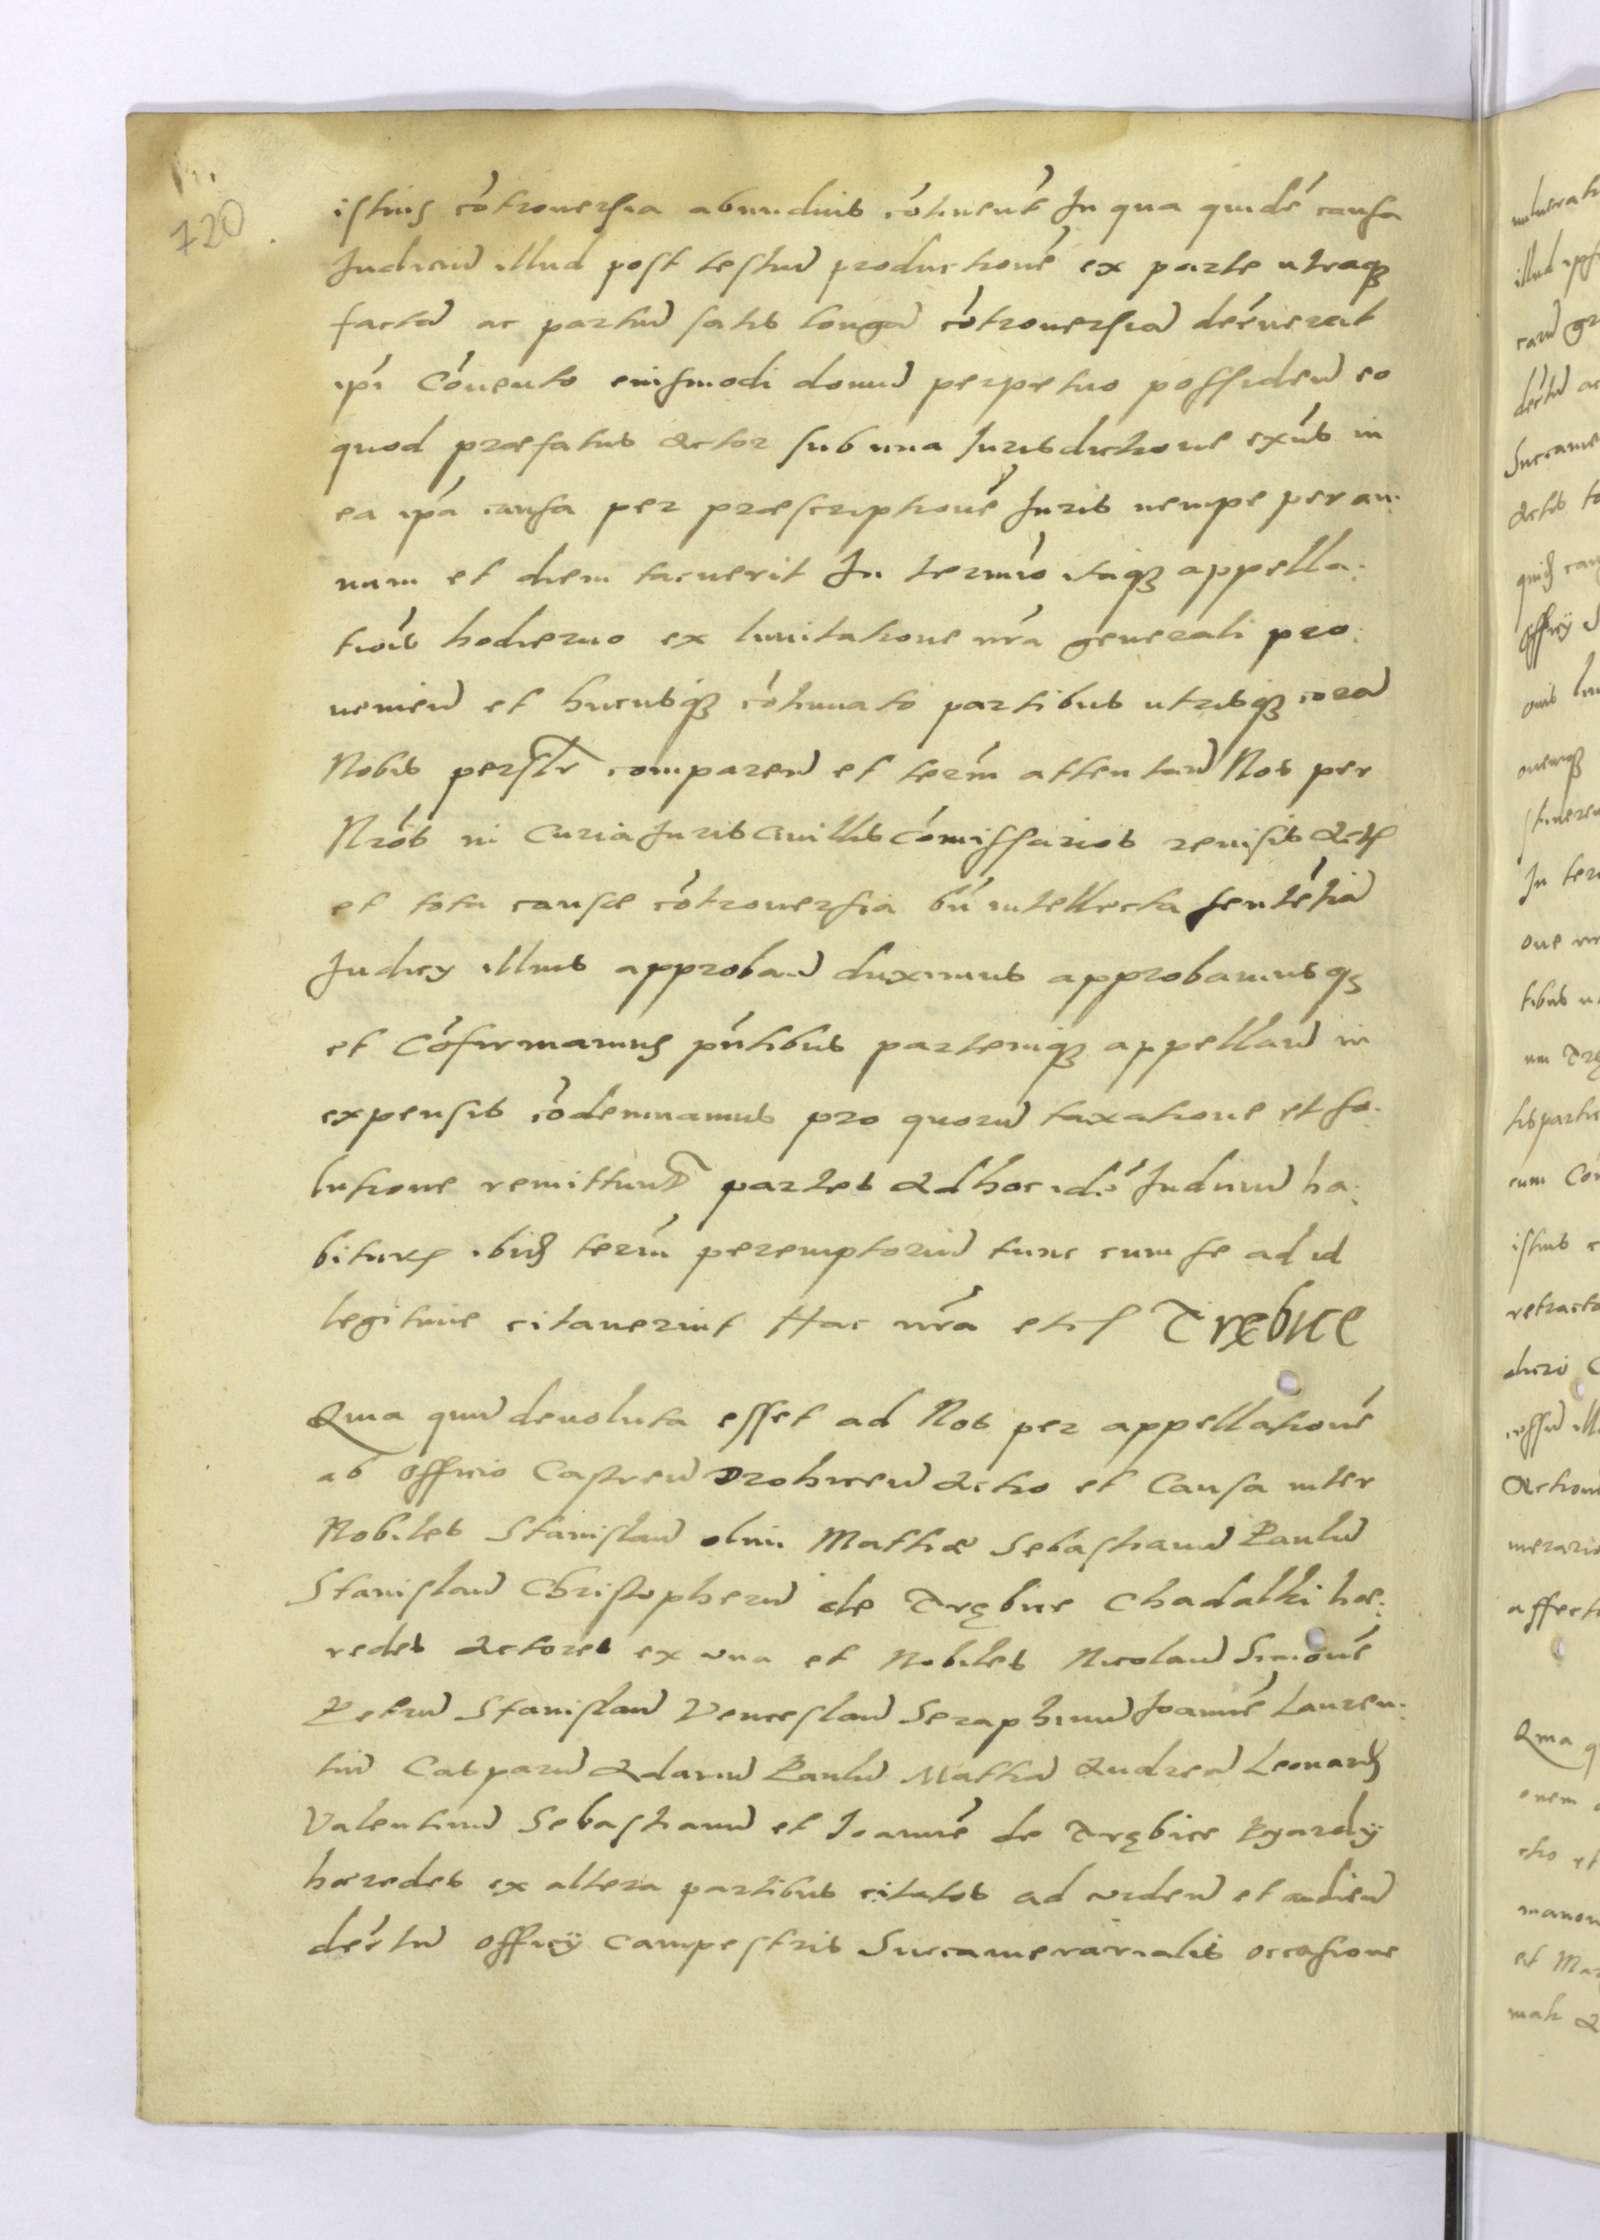 720
istius cótrouersia abundius cótinent́ In qua quidé causa
Iudiciũ illud post testiũ productioné ex parte utraqȝ
factã ac partiũ satis longã cótrouersiã decreuerat
ipi Cóuento eiusmodi domũ perpetuo possidendũ eo
quod præfatus Actor sub una Iurisdictione exñs in
ea ipa causa per præscriptioné Iuris nempe per an:
num et diem tacuerit In termio itaqȝ appella:
tiois hodierno ex limitatione nra generali pro:
uenien et hucusqȝ cótinuato partibus utrisqȝ corã
Nobis personalr comparen et term attentan Nos per
Nros in Curia Iuris Ciuillis Cómissarios reuisis actis
et tota causæ cótrouersia bn intellecta sentétiã
Iudicy illius approband duximus approbamusqȝ
et Cófirmamus pntibus partemqȝ appellan in
expensis códemnamus pro quorũ taxatione et so:
lutione remittunt partes ad hoc idé Iudiciũ ha:
bitur ibid term peremptoriũ tunc cum se ad id
legitime citauerint Hac nra etc Trębice
Quia quũ deuoluta esset ad Nos per appellationé
ab Officio Castren Drohicen Actio et Causa inter
Nobiles Stanislaũ olim Mathiæ Sebastianũ Paulũ
Stanislaũ Christopherũ de Trębice Chadalki hæ:
redes Actores ex una et Nobiles Nicolaũ Simoné
Petrũ Stanislaũ Venceslaũ Seraphinũ Joanné Lauren:
tiũ Casparũ Adamũ Paulũ Mathiã Andreã Leonard
Valentinũ Sebastianũ et Joanné de Trębice Pyardy
hæredes ex altera partibus citatos ad viden et audien
decretũ Officÿ Campestris Succamerarialis occasione